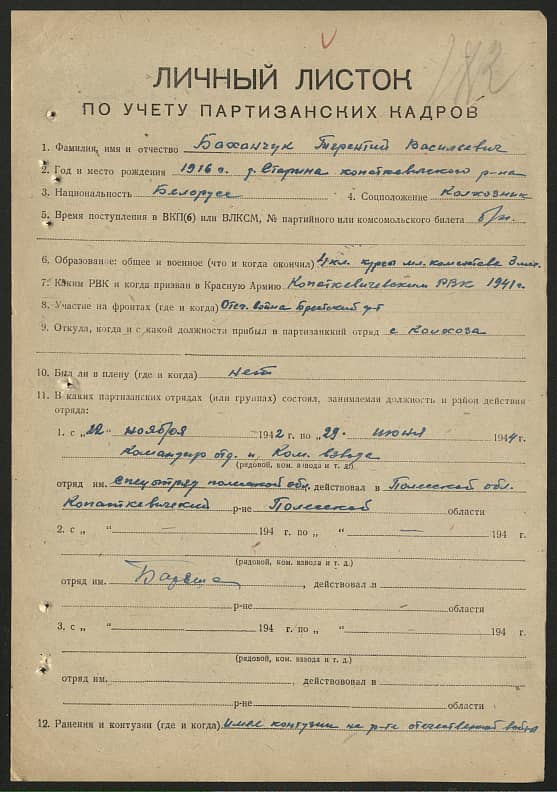 182
ЛИЧНЫЙ ЛИСТОК
ПО УЧЕТУ ПАРТИЗАНСКИХ КАДРОВ
1. Фамилия, имя и отчество Баханчук Терентий Васильевич
2. Год и место рождения 1916 г. д. Старина копаткевичского р-на
3. Национальность Белорус 4. Соцположение Колхозник
5. Время поступления в ВКП(б) или ВЛКСМ, № партийного или комсомольского билета б/п.
6. Образование: общее и военное (что и когда окончил) 4 кл. курсы мл.
7. Каким РВК и когда призван в Красную Армию Копаткевичским РВК 1941 г.
8. Участие на фронтах (где и когда) Отеч. война Брестский
9. Откуда, когда и с какой должности прибыл в партизанский отряд с колхоза
10. Был ли в плену (где и когда) нет
11. В каких партизанских отрядах (или группах) состоял, занимаемая должность и район действия
отряда:
1. с „22" ноября 1942 г. по „29" июня 1944 г.
Командир отд. и Ком. взвода
(рядовой, ком. взвода и т. д.)
отряд им. Спецотряд полесской обл. действовал в Полесской обл.
Копаткевичский р-не Полесской области
2. с „ " — 194 г. по „ " — 194 г.
(рядовой, ком. взвода и т. д.)
отряд им. , действовал в
р-не области
3. с „ " 194 г. по „ " 194 г.
(рядовой, ком. взвода и т. д.)
отряд им. , действовал в
р-не области
12. Ранения и контузии (где и когда) Имел контузии на отечественной войны